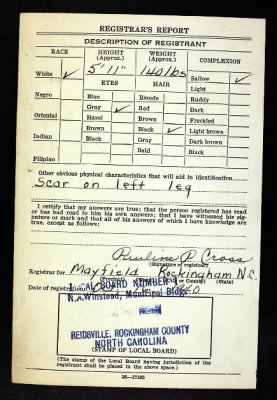 REGISTRAR'S REPORT
DESCRIPTION OF REGISTRANT
RACE HEIGHT (Approx.) WEIGHT (Approx.) COMPLEXION
White ✓ 5' 11" 140 lbs Sallow ✓
EYES HAIR Light
Negro Blue Blonde Ruddy
Gray ✓ Red Dark
Oriental Hazel Brown Freckled
Brown Black ✓ Light brown
Indian Black Gray Dark brown
Bald Black
Filipino
Other obvious physical characteristics that will aid in identification
Scar on left leg
I certify that my answers are true; that the person registered has read
or has had read to him his own answers; that I have witnessed his sig-
nature or mark and that all of his answers of which I have knowledge are
true, except as follows:
Pauline P. Cross
(Signature of registrar)
Registrar for Mayfield Rockingham N.C.
(State)
Date of registration
LOCAL BOARD NUMBER 1
N.A. Winstead, Municipal Bldg.
REIDSVILLE, ROCKINGHAM COUNTY
NORTH CAROLINA
(STAMP OF LOCAL BOARD)
(The stamp of the Local Board having jurisdiction of the
registrant shall be placed in the above space.)